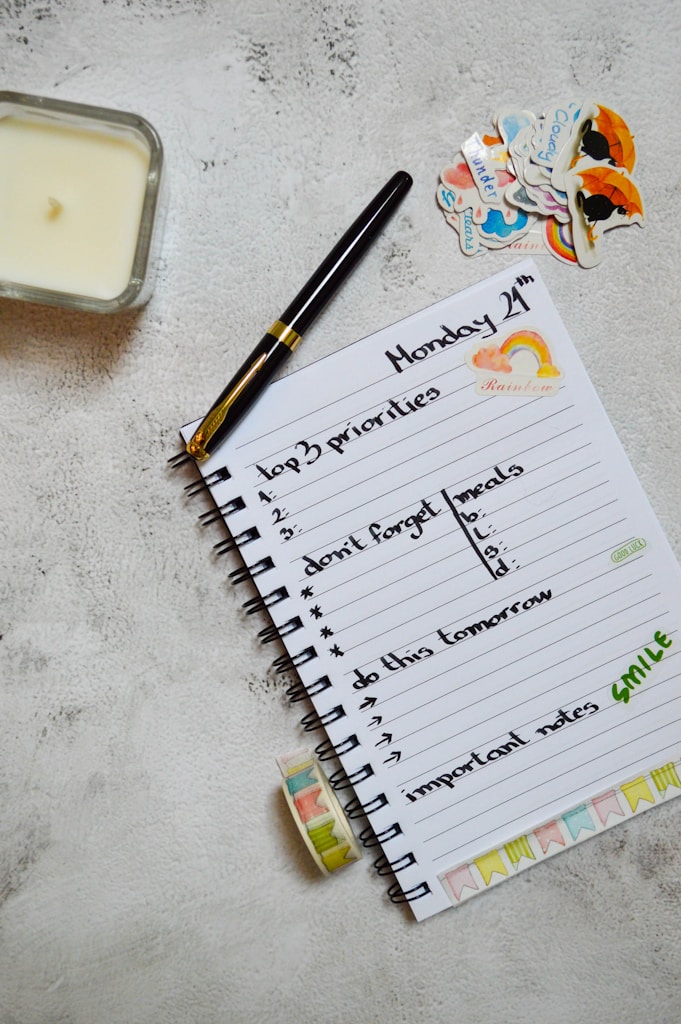 Cloudy
Thunder
Tears
Rainbow
Monday 21th
Rainbow
top 3 priorities
1:
2:
3:
don't forget
*
*
*
*
meals
b:
L:
s:
d:
GOOD LUCK
do this tomorrow
→
→
→
→
SMILE
important notes